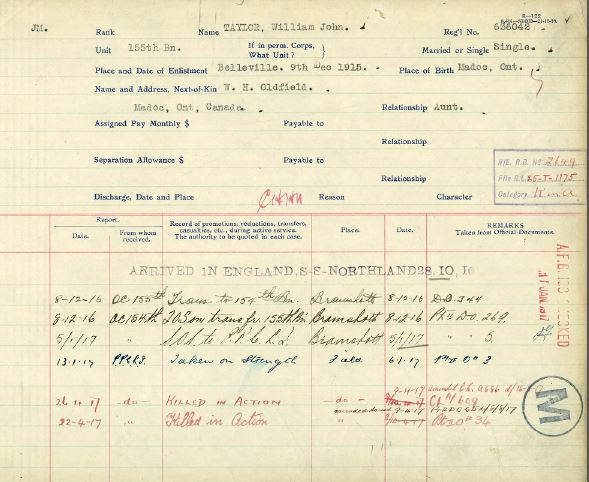 JM. Rank Name TAYLOR, William John. Reg'l No. 636042
Unit 155th Bn. If in perm. Corps, What Unit? Married or Single Single.
Place and Date of Enlistment Belleville. 9th Dec 1915. Place of Birth Madoc, Ont.
Name and Address, Next-of-Kin W. H. Oldfield.
Madoc, Ont, Canada. Relationship Aunt.
Assigned Pay Monthly $ Payable to
Relationship
Separation Allowance $ Payable to
Relationship
N/E. R.B. No 2649
File R.L. 25-T-1175
Category K in A
Discharge, Date and Place Reason Character
Report. Record of promotions, reductions, transfers, casualties, etc., during active service. The authority to be quoted in each case. Place. Date. REMARKS Taken from Official Documents.
Date. From whom received.
ARRIVED IN ENGLAND, S-S-NORTHLAND 28.10.16
8-12-16 OC 155th Trans to 154th Bn. Bramshott 8-12-16 D.O. 344
8-12-16 OC 154th T.O.S. on transf. fr. 155th Bn Bramshott 8-12-16 Pt II D.O. 269.
5/1/17 " S.O.S. to P.P.C.L.I. Bramshott 5/1/17 " " 5.
13-1-17 P.P.C.L.I. Taken on Strength Field 6-1-17 Pt II O# 3
26.4.17 -do- KILLED IN ACTION -do- 9-4-17 CL#/609
22-4-17 " Killed in Action " Pt II O# 36
A.F.B. 103 CHECKED
31 JAN 1917
M